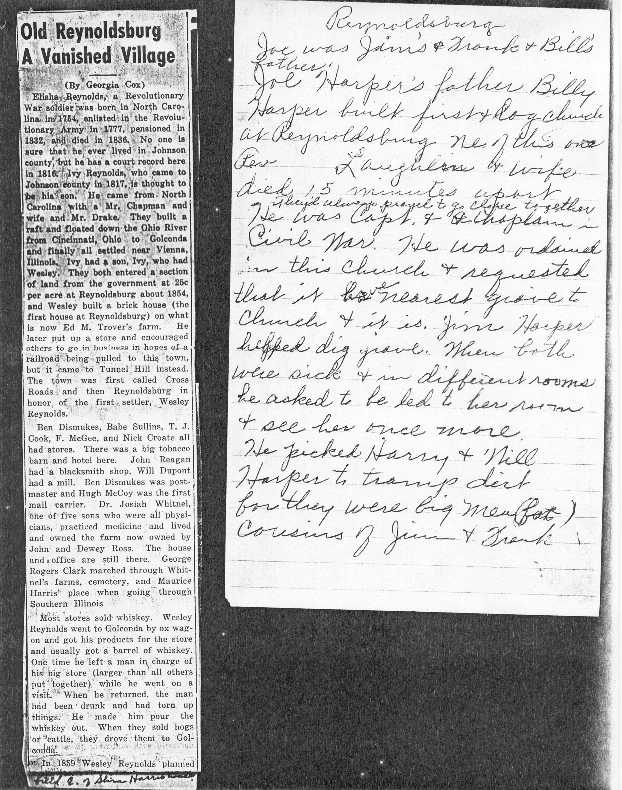 Old Reynoldsburg
A Vanished Village
(By Georgia Cox)
Elisha Reynolds, a Revolutionary
War soldier was born in North Caro-
lina in 1754, enlisted in the Revolu-
tionary Army in 1777, pensioned in
1832, and died in 1836. No one is
sure that he ever lived in Johnson
county, but he has a court record here
in 1816. Ivy Reynolds, who came to
Johnson county in 1817, is thought to
be his son. He came from North
Carolina with a Mr. Chapman and
wife and Mr. Drake. They built a
raft and floated down the Ohio River
from Cincinnati, Ohio to Golconda
and finally all settled near Vienna,
Illinois. Ivy had a son, Ivy, who had
Wesley. They both entered a section
of land from the government at 25c
per acre at Reynoldsburg about 1854,
and Wesley built a brick house (the
first house at Reynoldsburg) on what
is now Ed M. Trover's farm. He
later put up a store and encouraged
others to go in business in hopes of a
railroad being pulled to this town,
but it came to Tunnel Hill instead.
The town was first called Cross
Roads and then Reynoldsburg in
honor of the first settler, Wesley
Reynolds.
Ben Dismukes, Babe Sullins, T. J.
Cook, F. McGee, and Nick Croate all
had stores. There was a big tobacco
barn and hotel here. John Reagan
had a blacksmith shop. Will Dupont
had a mill. Ben Dismukes was post-
master and Hugh McCoy was the first
mail carrier. Dr. Josiah Whitnel,
one of five sons who were all physi-
cians, practiced medicine and lived
and owned the farm now owned by
John and Dewey Ross. The house
and office are still there. George
Rogers Clark marched through Whit-
nel's farms, cemetery, and Maurice
Harris' place when going through
Southern Illinois
Most stores sold whiskey. Wesley
Reynolds went to Golconda by ox wag-
on and got his products for the store
and usually got a barrel of whiskey.
One time he left a man in charge of
his big store (larger than all others
put together) while he went on a
visit. When he returned, the man
had been drunk and had torn up
things. He made him pour the
whiskey out. When they sold hogs
or cattle, they drove them to Gol-
conda.
In 1859 Wesley Reynolds planned
Reynoldsburg
Joe was Jim's & Frank & Bill's
father
Joe Harper's father Billy
Harper built first Log church
at Reynoldsburg NE of this one
Rev. Laughlin & wife
died 15 minutes apart
& they always prayed to go close together
He was Capt. & Chaplain in
Civil War. He was ordained
in this church & requested
that it be nearest grave to
church & it is. Jim Harper
helped dig grave. When both
were sick & in different rooms
he asked to be led to her room
& see her once more.
He picked Harry & Will
Harper to tramp dirt
for they were big men (fat)
Cousins of Jim & Frank